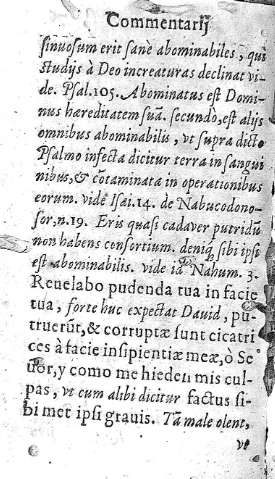 Commentarij
sinuosum erit sanè abominabiles, qui
studijs à Deo increaturas declinat vi-
de. Psal.105. Abominatus est Domi-
nus hæreditatem suã. secundo, est alijs
omnibus abominabilis, vt supra dicto
Psalmo infecta dicitur terra in sangui
nibus, & cõtaminata in operationibus
eorum. vide Isai.14. de Nabucodono-
sor, n.19. Eris quasi cadauer putridũ
non habens consortium. deniq; sibi ipsi
est abominabilis. vide id Nahum. 3.
Reuelabo pudenda tua in facie
tua, forte huc expectat Dauid, pu-
truerũt, & corruptæ sunt cicatri
ces à facie insipientiæ meæ, ò Se
uor, y como me hieden mis cul-
pas, vt cum alibi dicitur factus si-
bi met ipsi grauis. Tã male olent,
vt